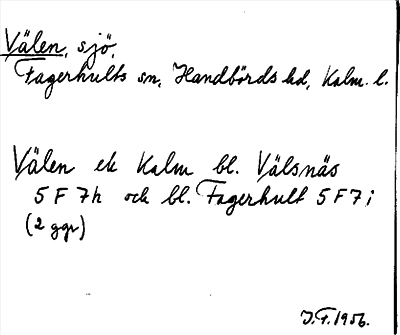 Välen, sjö,
Fagerhults sn, Handbörds hd, Kalm. l.
Välen ek Kalm bl. Välsnäs
5 F 7h och bl. Fagerhult 5 F 7 i
(2 ggr)
J.F. 1956.